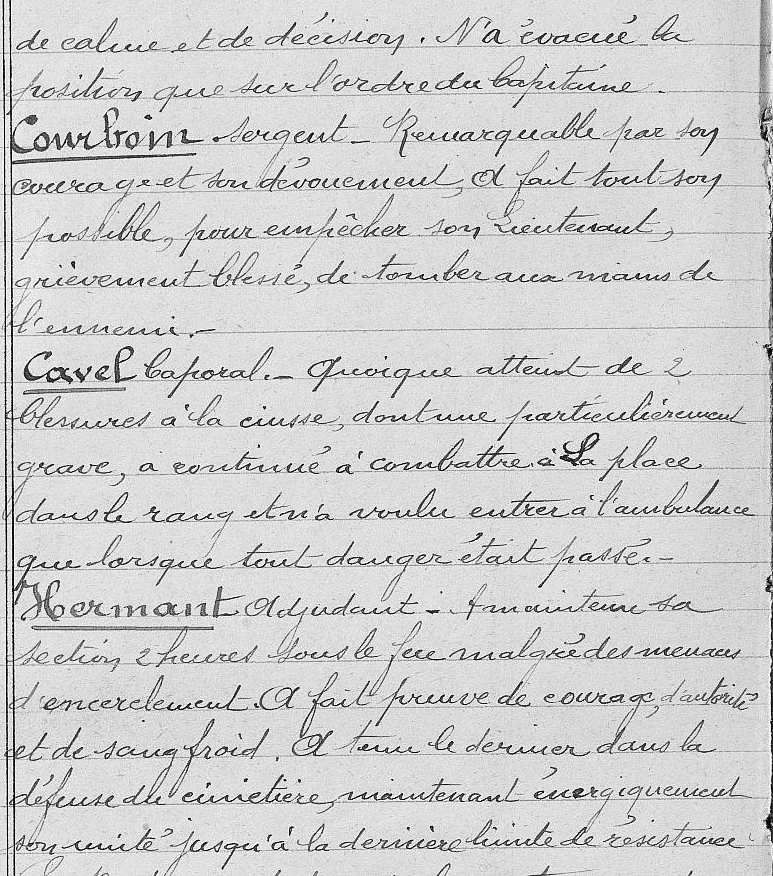 de calme et de décision. N'a évacué la
position que sur l'ordre du Capitaine.
Courboin. Sergent _ Remarquable par son
courage et son dévouement, A fait tout son
possible, pour empêcher son Lieutenant,
grièvement blessé, de tomber aux mains de
l'ennemi. _
Cavel Caporal. _ Quoique atteint de 2
blessures à la cuisse, dont une particulièrement
grave, a continué à combattre à La place
dans le rang et n'a voulu entrer à l'ambulance
que lorsque tout danger était passé. _
Hermant Adjudant _ A maintenu sa
section 2 heures sous le feu malgré des menaces
d'encerclement. A fait preuve de courage, d'autorité
et de sang froid. A tenu le dernier dans la
défense du cimetière, maintenant énergiquement
son unité jusqu'à la dernière limite de résistance